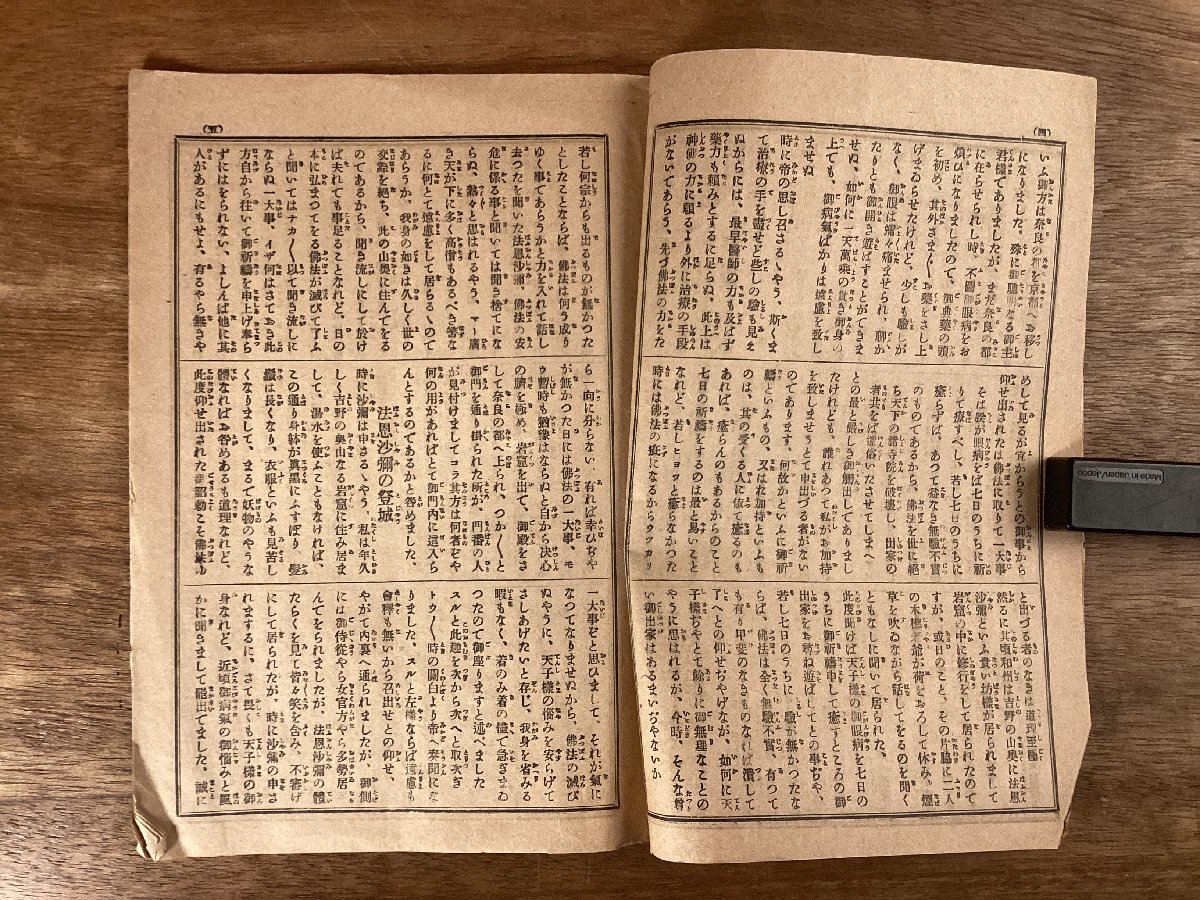 (四)
いふ御方は奈良の都を京都へお移し
になりました、殊に御聰明なる御主
君樣でありましたが、まだ奈良の都
に在らせられし時、不圖御眼病をお
煩ひになりましたので、御典藥の頭
を初め、其外さま〲お藥をさし上
げまゐらせたけれど、少しも驗しが
なく、御眼は嬬々痛ませられ、聊か
たりとも御開き遊ばすことができま
せぬ、如何に一天萬乘の貴き御身の
上でも、御病氣ばかりは遠慮を致し
ませぬ
時に帝の思し召さるゝやう、斯くま
で治療の手を盡せど些しの驗も見え
ぬからには、最早醫師の力も及ばず
藥力も賴みとするに足らぬ、此上は
神佛の力に賴るより外に治療の手段
がないであらう、先づ佛法の力をた
めして見るが宜からうとの御事から
仰せ出されたは佛法に取りて一大事
そは朕が眼病を七日のうちに祈
りて癒すべし、若し七日のうちに
癒らずば、あつて益なき無驗不實
のものであるから、佛法を世に絶
ち天下の諸寺院を破壞し、出家の
者共をば還俗いたさせてしまへ
との最と嚴しき御觸出してありまし
たけれども、誰れあつて私がお加持
を致しませうとて申出づる者がない
のであります、何故かといふに御祈
禱といふもの、又はお加持といふも
のは、其の受くる人に依て癒るのも
あれば、癒らんのもあるからのこと
七日の祈禱をするのは最と易いこと
なれど、若しヒヨツと癒らなかつた
時には佛法の疵になるからウツカリ
と出づる者のなきは道理至極
然るに其頃和州は吉野の山奥に法恩
沙彌といふ貴い坊樣が居られまして
岩窟の中に修行をして居られたので
すが、或日のこと、その片脇に二人
の木樵き爺が荷をおろして休み、煙
草を吹ゐながら話してをるのを聞く
ともなしに聞いて居られた。
此度聞けば天子樣の御眼病を七日の
うちに御祈禱申して癒すところの御
出家をお尋ね遊ばしてとの事ぢや、
若し七日のうちに、驗が無かつたな
らば、佛法は全く無驗不實、有つて
も有り甲斐のなきものなれば潰して
了へとの仰せぢやげなが、如何に天
子樣ぢやとて餘りに御無理なことの
やうに思はれるが、今時、そんな尊
い御出家はあるまいぢやないか
(五)
若し何宗からも出るものが無かつた
としたことならば、佛法は何う成り
ゆく事であらうかと力を入れて話し
去つたを聞いた法恩沙彌、佛法の安
危に係る事と聞いては聞き捨てにな
らぬ、熟々と思はれるやう、マー廣
き天が下に多く高僧もあるべき筈な
るに何とて遠慮をして居らるゝので
あらうか、我身の如きは久しく世の
交際を絶ち、此の山奥に住んでをる
のてあるから、聞き流しにして於け
ば夫れても事足ることなれど、日の
本に弘まつてをる佛法が滅びて了ふ
と聞いてはナカ〱以て聞き流しに
ならぬ一大事、イザ何はさてお き此
方自から往いて御祈禱を申上げ奉ら
ずにはをられない、よしんば他に其
人があるにもせよ、有るやら無きや
ら一向に分らない、有れば幸ひぢや
が無かつた日には佛法の一大事、モ
ウ暫時も猶豫はならぬと自から決心
の臍を極め、岩窟を出て、御殿をさ
して奈良の都へ上られ、つか〱と
御門を通り掛られた所が、門番の人
が見付けましてコラ其方は何者ぞや
何の用があればとて御門内に這入ら
んとするのてあるかと咎めました、
法恩沙彌の登城
時に沙彌は申さるゝやう、私は年久
しく吉野の奥山なる岩窟に住み居ま
して、湯水を使ふこともなければ、
この通り身躰が眞黑にふすぼり、髮
鬚は長くなり、衣服といふも見苦し
くなりまして、まるで妖物のやうな
體なればお咎めあるも道理なれど、
此度仰せ出された御詔勅こそ佛法の
一大事ぞと思ひまして、それが氣に
なつてなりませぬから、佛法の滅び
ぬやうに、天子樣の惱みを安らげて
さしあげたいと存じ、我身を省みる
暇もなく、着のみ着の儘で急ぎまゐ
つたので御座りますと述べました
スルと此趣を次から次へと取次ぎ
トウ〱時の關白より帝へ奏聞にな
りました、スルと左樣ならば遠慮も
會釋も無いから召出せとの仰せ、
やがて内裏へ通られましたが、御側
には御侍從やら女官方やら多勢居
んてをられましたが、法恩沙彌の體
たらくを見て皆々笑を含み、不審げ
にして居られたが、時に沙彌の申さ
れまするに、さて畏くも天子樣の御
身なれど、近頃御病氣の御惱みと風
かに聞きまして罷出てました、誠に
Made in Japan/Japón